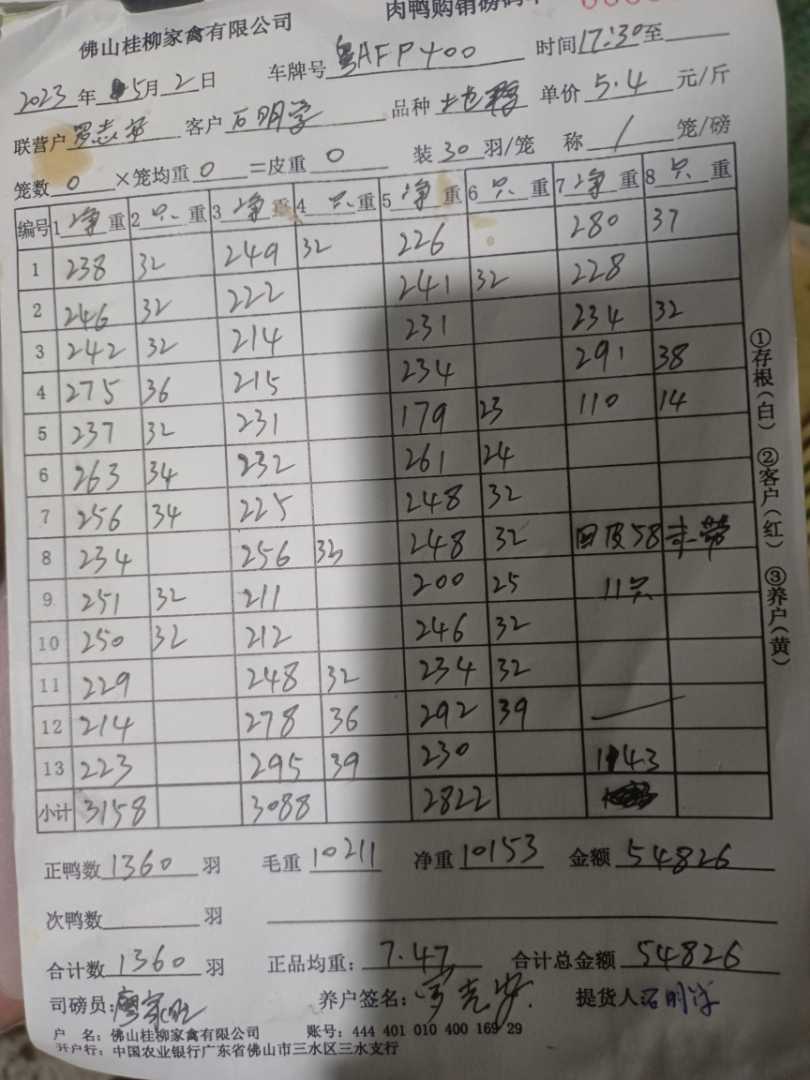 佛山桂柳家禽有限公司 肉鸭购销磅码单
2023年5月2日 车牌号 粤AFP400 时间17:30至
联营户 客户 石明学 品种 单价 5.4 元/斤
笼数 0 ×笼均重 0 =皮重 0 装 30 羽/笼 称 / 笼/磅
编号 1 净 重 2 只 重 3 净 重 4 只 重 5 净 重 6 只 重 7 净 重 8 只 重
1 238 32 249 32 226 280 37
2 246 32 222 241 32 228
3 242 32 214 231 234 32
4 275 36 215 234 291 38
5 237 32 231 179 23 110 14
6 263 34 232 261 24
7 256 34 225 248 32
8 234 256 33 248 32 回皮58 未带
9 251 32 211 200 25 11只
10 250 32 212 246 32
11 229 248 32 234 32
12 214 278 36 292 39
13 223 295 39 230 1143
小计 3158 3088 2822
正鸭数 1360 羽 毛重 10211 净重 10153 金额 54826
次鸭数 羽
合计数 1360 羽 正品均重: 7.47 合计总金额 54826
司磅员: 养户签名: 提货人: 石明学
户 名: 佛山桂柳家禽有限公司 账号: 444 401 010 400 169 29
开户行: 中国农业银行广东省佛山市三水区三水支行
①存根(白) ②客户(红) ③养户(黄)